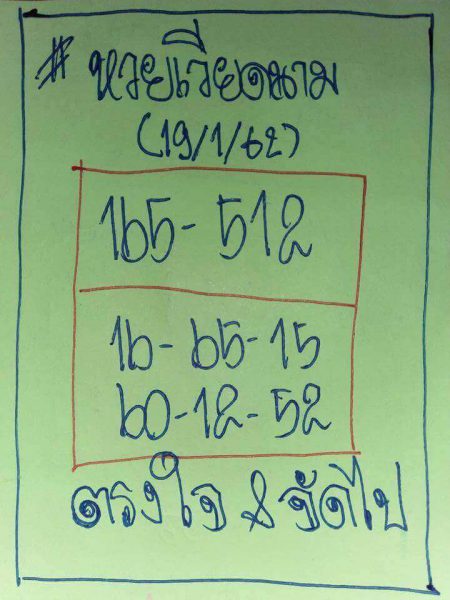 # หวยเวียดนาม
(19/1/62)
165-512
16-65-15
60-12-52
ตรงใจ & จัดไป